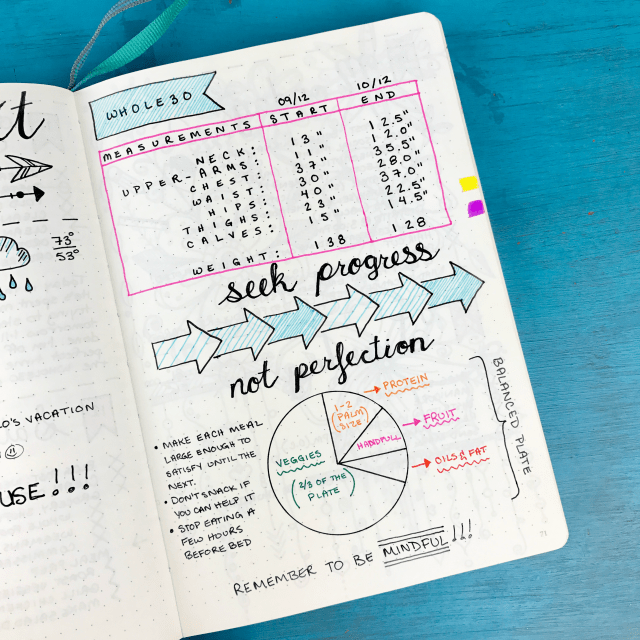 ct
73°
53°
LO'S VACATION
USE!!!
WHOLE30
09/12 10/12
MEASUREMENTS START END
NECK: 13" 12.5"
UPPER-ARMS: 11" 12.0"
CHEST: 37" 35.5"
WAIST: 30" 28.0"
HIPS: 40" 37.0"
THIGHS: 23" 22.5"
CALVES: 15" 14.5"
WEIGHT: 138 128
seek progress
not perfection
• MAKE EACH MEAL
LARGE ENOUGH TO
SATISFY UNTIL THE
NEXT.
• DON'T SNACK IF
YOU CAN HELP IT
• STOP EATING A
FEW HOURS
BEFORE BED
VEGGIES
(2/3 OF THE
PLATE)
1-2
(PALM
SIZE)
PROTEIN
HANDFULL
FRUIT
OILS & FAT
BALANCED PLATE
REMEMBER TO BE MINDFUL!!!